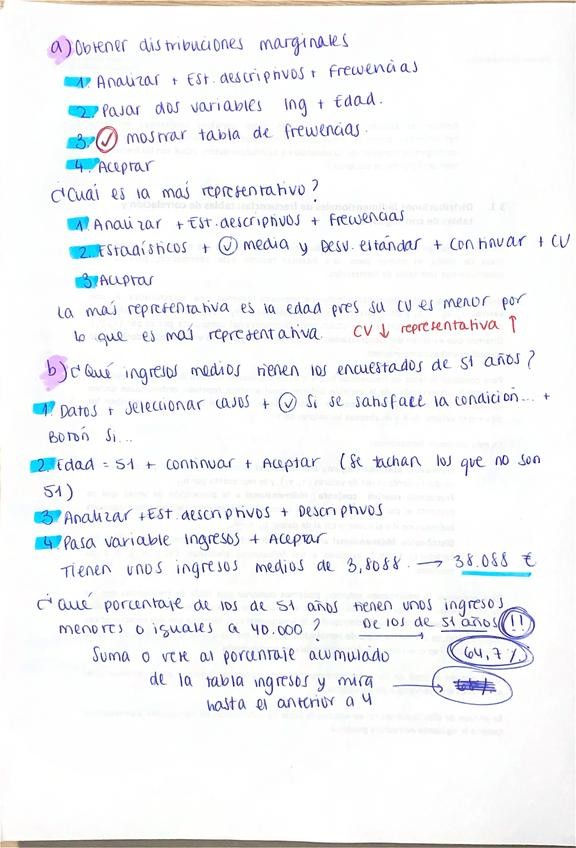 a) Obtener distribuciones marginales
1. Analizar + Est. descriptivos + Frecuencias
2. Pasar dos variables Ing + Edad.
3. ✓ mostrar tabla de frecuencias.
4. Aceptar
¿Cuál es la más representativo?
1. Analizar + Est. descriptivos + Frecuencias
2. Estadísticos + ✓ media y Desv. estándar + continuar + CV
3. Aceptar
La más representativa es la edad pues su CV es menor por
lo que es más representativa. CV ↓ representativa ↑
b) ¿Qué ingresos medios tienen los encuestados de 51 años?
1. Datos + seleccionar casos + ✓ Si se satisface la condición... +
Botón Si...
2. Edad = 51 + continuar + Aceptar (Se tachan los que no son
51)
3. Analizar + Est. descriptivos + Descriptivos
4. Pasa variable Ingresos + Aceptar.
Tienen unos ingresos medios de 3,8088. → 38.088 €
¿Qué porcentaje de los de 51 años tienen unos ingresos
menores o iguales a 40.000? De los de 51 años !!
Suma o vete al porcentaje acumulado 64,7%
de la tabla ingresos y mira →
hasta el anterior a 4